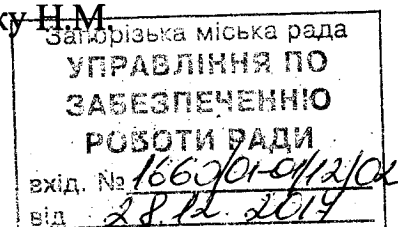 ку Н.М.
Запорізька міська рада
УПРАВЛІННЯ ПО
ЗАБЕЗПЕЧЕННЮ
РОБОТИ РАДИ
вхід. № 1660/01-01/12/02
від 28.12.2017